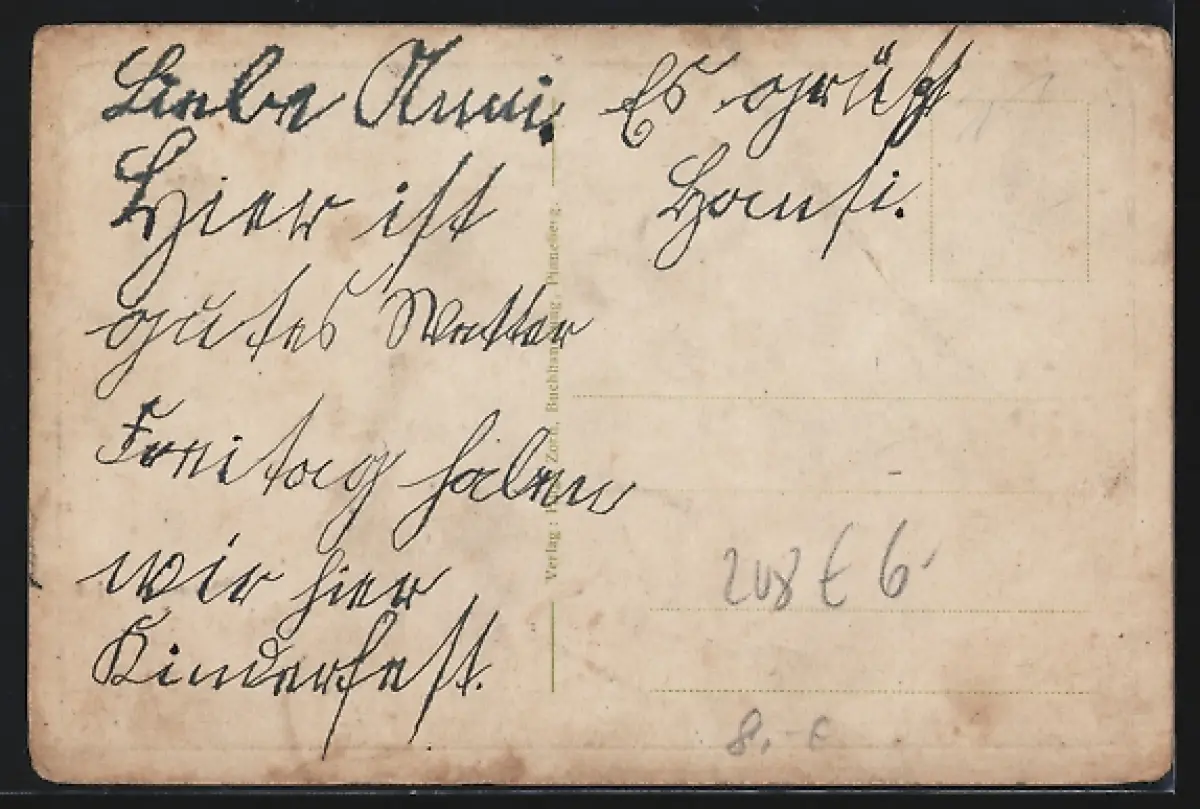 Liebe Anni.
Hier ist
gutes Wetter
Freitag haben
wir hier
Kinderfest.
Es grüßt
Hansi.
Verlag: Zorn, Buchhandlung,
208 € 6
8.-€